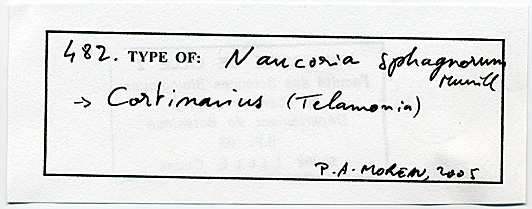 482. TYPE OF: Naucoria sphagnorum
Murrill
→ Cortinarius (Telamonia)
P.A. MOREAU, 2005